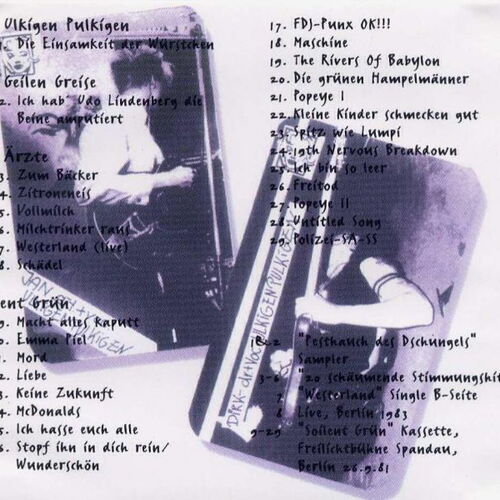 Ulkigen Pulkigen
1. Die Einsamkeit der Würstchen
Geilen Greise
2. Ich hab' Udo Lindenberg die
Beine amputiert
Ärzte
3. Zum Bäcker
4. Zitroneneis
5. Vollmilch
6. Milchtrinker raus
7. Westerland (live)
8. Schädel
ent Grün
9. Macht alles kaputt
0. Emma Piel
1. Mord
2. Liebe
3. Keine Zukunft
4. McDonalds
5. Ich hasse euch alle
6. Stopf ihn in dich rein/
Wunderschön
17. FDJ-Punx OK!!!
18. Maschine
19. The Rivers Of Babylon
20. Die grünen Hampelmänner
21. Popeye I
22. Kleine Kinder schmecken gut
23. Spitz wie Lumpi
24. 19th Nervous Breakdown
25. Ich bin so leer
26. Freitod
27. Popeye II
28. Untitled Song
29. Polizei-SA-SS
"Pesthauch des Dschungels"
Sampler
3-6 "20 schäumende Stimmungshit
7 "Westerland" Single B-Seite
8 Live, Berlin 1983
9-29 "Soilent Grün" Kassette,
Freilichtbühne Spandau,
Berlin 26.9.81
JAN
ULKIGEN PULKIGEN
DIRK